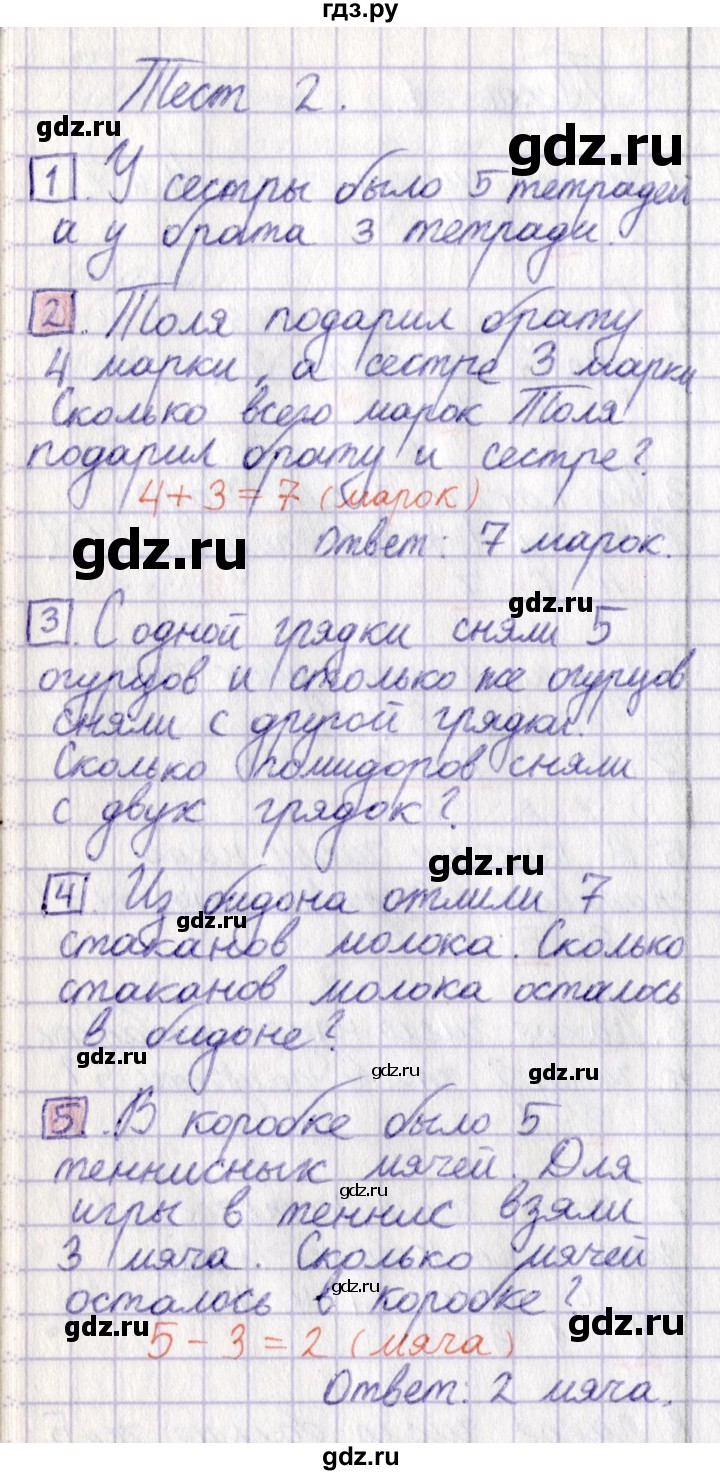 гдз.ру
Тест 2.
gdz.ru
gdz.ru
1. У сестры было 5 тетрадей
а у брата 3 тетради.
2. Толя подарил брату
4 марки, а сестре 3 марки
Сколько всего марок Толя
подарил брату и сестре?
4 + 3 = 7 (марок)
gdz.ru
Ответ: 7 марок.
gdz.ru
3. С одной грядки сняли 5
огурцов и столько же огурцов
сняли с другой грядки.
Сколько помидоров сняли
с двух грядок?
gdz.ru
4. Из бидона отлили 7
gdz.ru
стаканов молока. Сколько
стаканов молока осталось
в бидоне?
gdz.ru
gdz.ru
gdz.ru
5. В коробке было 5
теннисных мячей. Для
gdz.ru
игры в теннис взяли
3 мяча. Сколько мячей
gdz.ru
осталось в коробке?
gdz.ru
gdz.ru
5 - 3 = 2 (мяча)
Ответ: 2 мяча.
gdz.ru